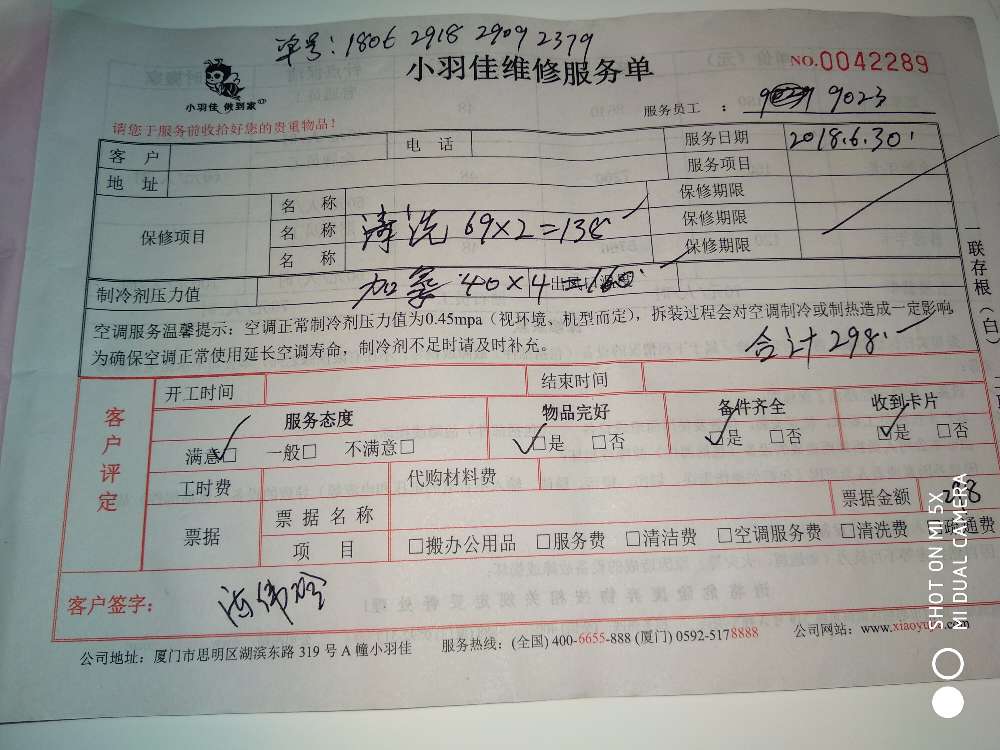 单号：1806 2918 2909 2379
小羽佳 做到家
小羽佳维修服务单
NO.0042289
服务员工 ： 9023
请您于服务前收拾好您的贵重物品！
客 户 电 话 服务日期 2018.6.30.
地 址 服务项目
保修项目 名 称 保修期限
名 称 清洗 69×2=138 保修期限
名 称 保修期限
制冷剂压力值 加氨 40×4=160
空调服务温馨提示：空调正常制冷剂压力值为0.45mpa（视环境、机型而定），拆装过程会对空调制冷或制热造成一定影响
为确保空调正常使用延长空调寿命，制冷剂不足时请及时补充。
合计298.
一联存根（白）
客户评定
开工时间 结束时间
服务态度 物品完好 备件齐全 收到卡片
满意□ 一般□ 不满意□ □是 □否 □是 □否 □是 □否
工时费 代购材料费
票据 票据名称 票据金额 298
项 目 □搬办公用品 □服务费 □清洁费 □空调服务费 □清洗费 □疏通费
客户签字：
公司地址：厦门市思明区湖滨东路 319 号 A 幢小羽佳 服务热线：(全国) 400-6655-888 (厦门) 0592-5178888 公司网站：www.xiaoyu
SHOT ON MI 5X
MI DUAL CAMERA